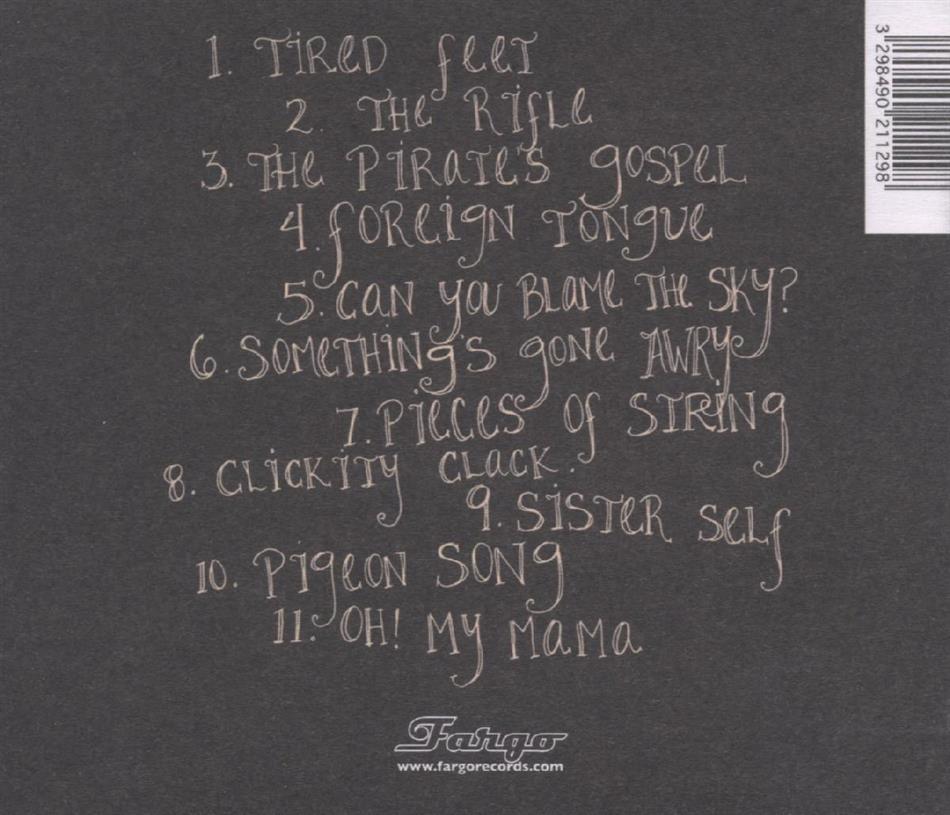 1. TIRED FEET
2. THE RIFLE
3. THE PIRATE'S GOSPEL
4. FOREIGN TONGUE
5. CAN YOU BLAME THE SKY?
6. SOMETHING'S GONE AWRY
7. PIECES OF STRING
8. CLICKITY CLACK.
9. SISTER SELF
10. PIGEON SONG
11. OH! MY MAMA
Fargo
www.fargorecords.com
3 298490 211298